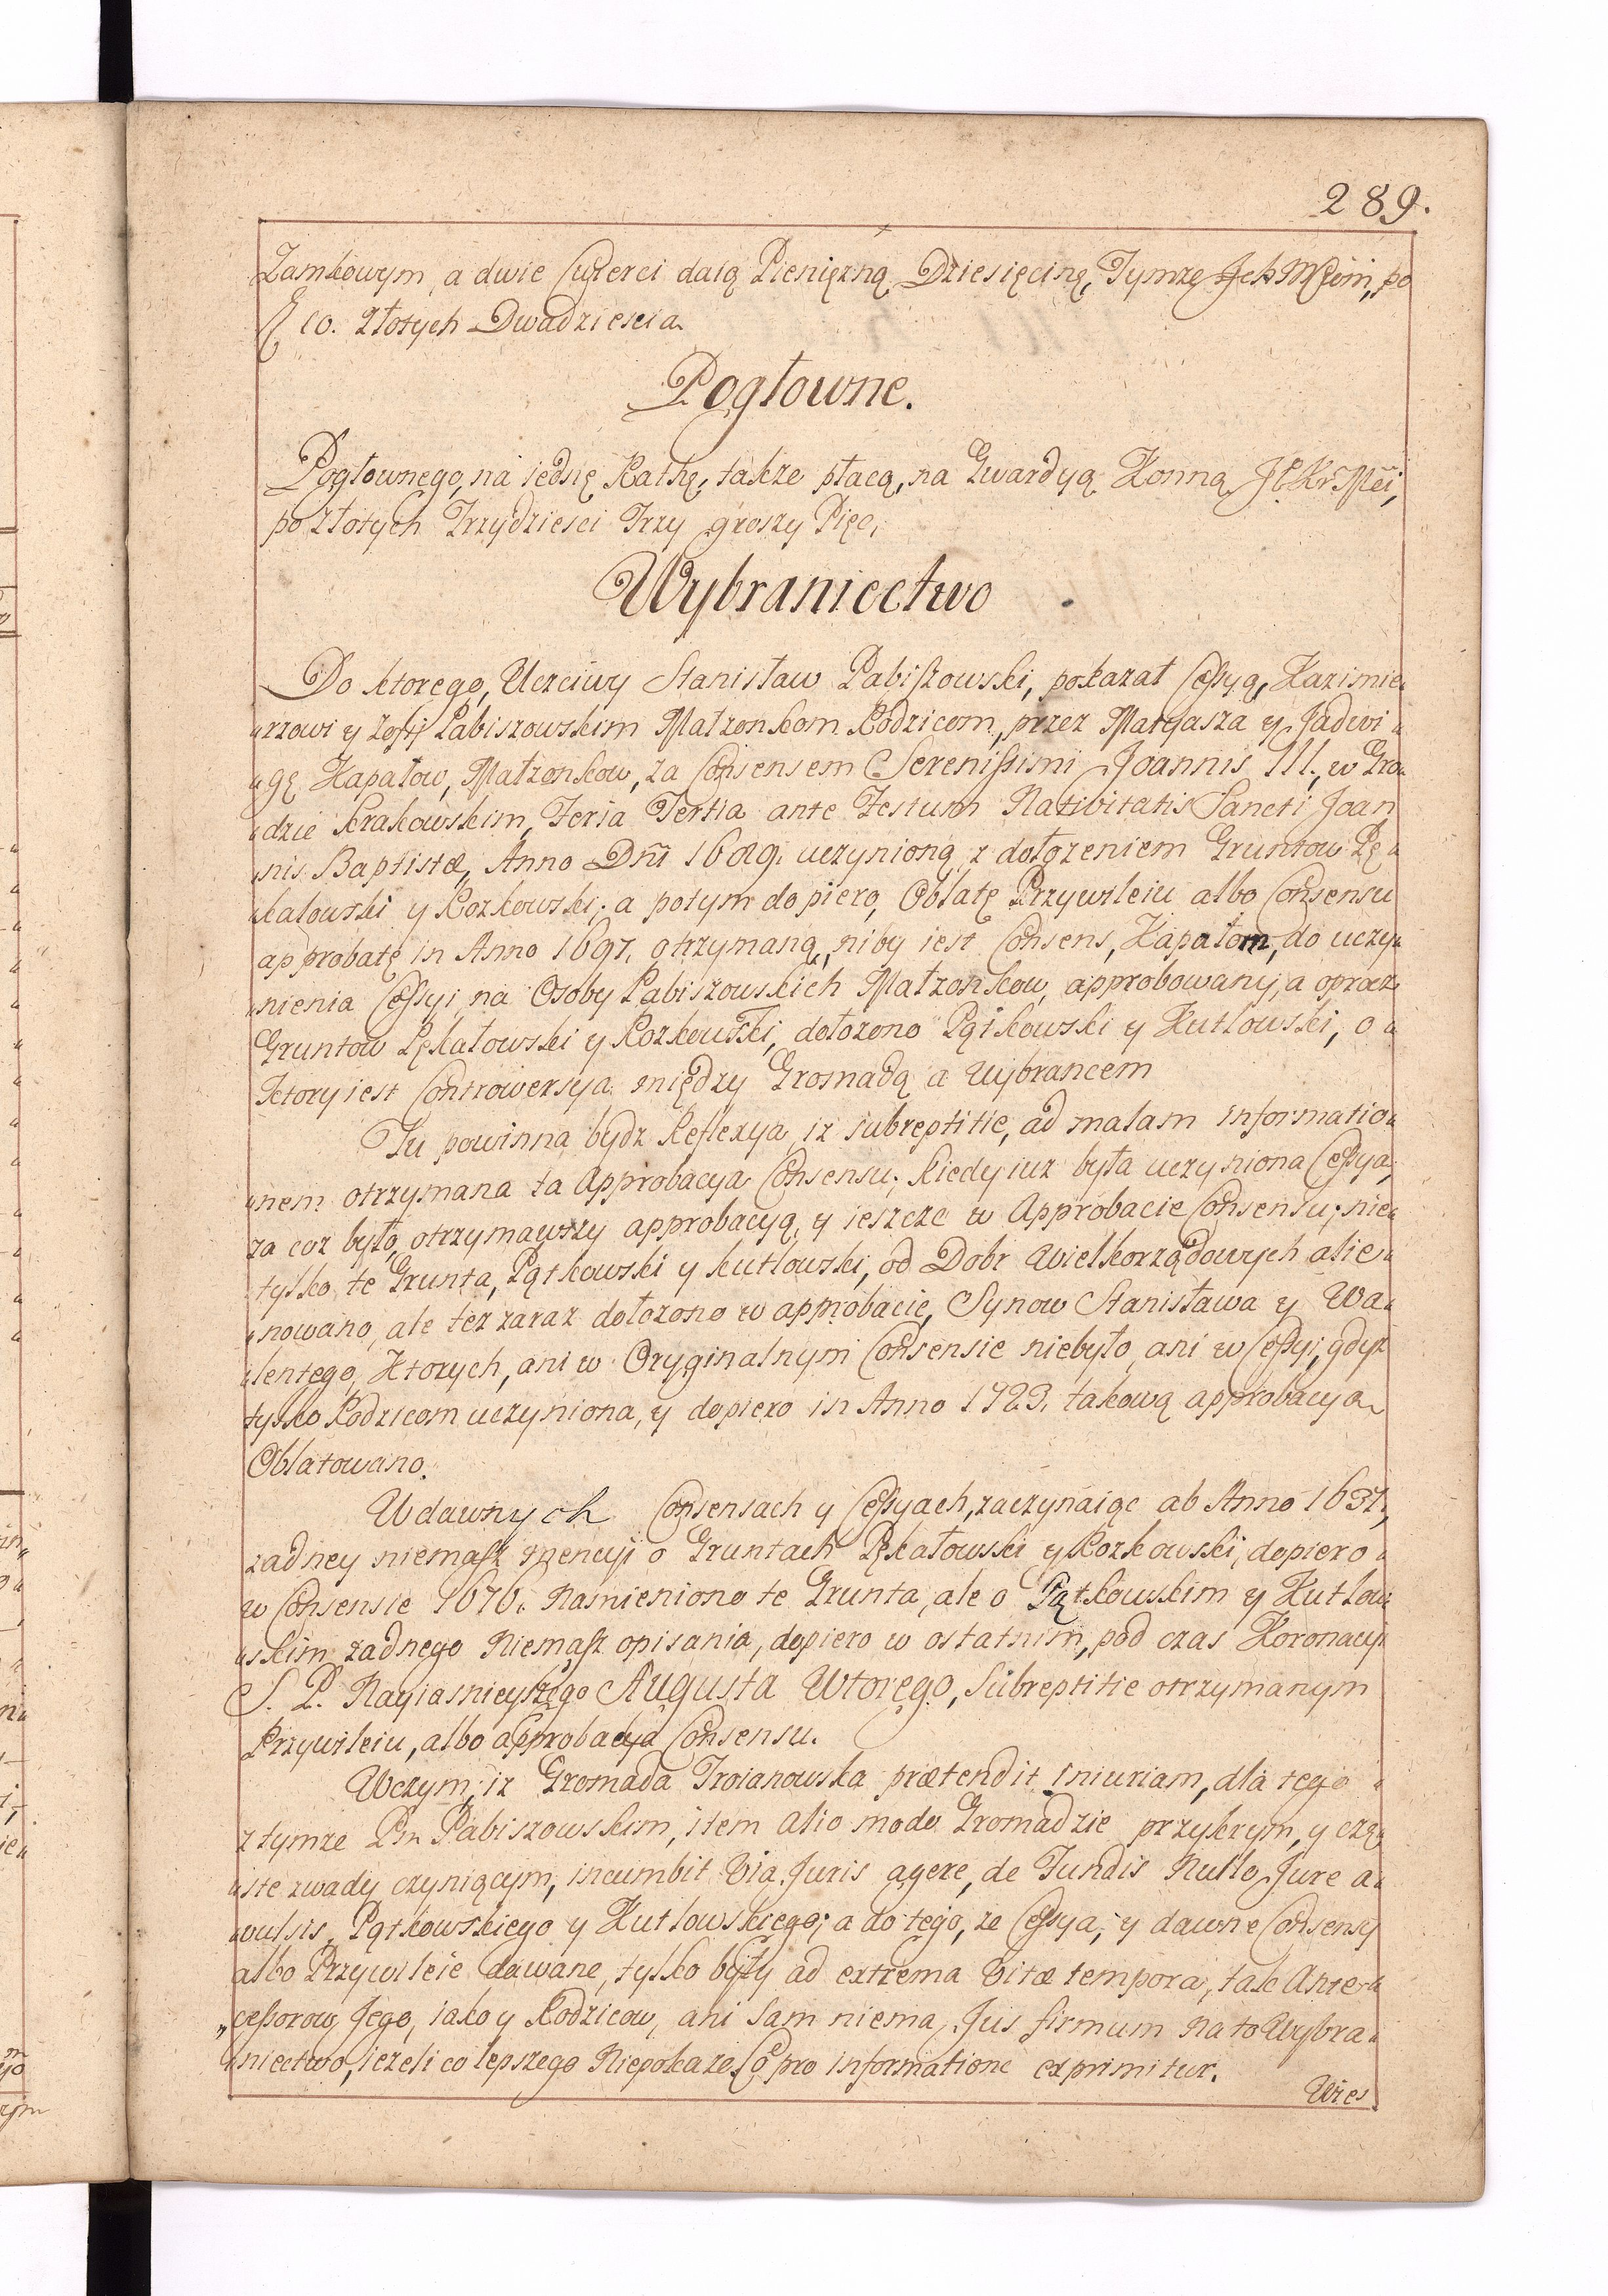 289.
Zamkowym, a dwie Cwierci daią Pienięzną Dziesięcinę, Tymze Ich Mciom, po
10. Złotych Dwadziescia.
Pogłowne.
Pogłownego, na iednę Rathę, takze płacą, na Gwardyą Konną JKr Mci,
po Złotych Trzydziesci Trzy groszy Pięc,
Wybraniectwo
Do ktorego, Uczciwy Stanisław Pabiszowski, pokazał Cessyą, Kazimie„
„rzowi y Zofij Pabiszowskim Małzonkom Rodzicom, przez Matyasza y Jadwi„
„gę Kapałow, Małzonkow, za Consensem Serenissimi Joannis III., w Gro„
„dzie Krakowskim, Feria Tertia ante Festum Nativitatis Sancti Joan
„nis Baptistæ, Anno Dni 1689. uczynioną z dołozeniem Gruntow Pę„
„kałowski y Kozkowski; a potym dopiero, Oblatę Przywileiu albo Consensu
approbatę in Anno 1697. otrzymaną, niby iest Consens, Kapałom, do uczy„
„nienia Cessyi na Osoby Pabiszowskich Małzonkow, approbowany, a oprocz
Gruntow Pękałowski y Kozkowski, dołozono Pątkowski y Kutlowski, o„
Ktory iest Controwersya między Gromadą a Wybrancem
Tu powinna bydz Reflexya iz subreptitie, ad malam informatio„
„nem otrzymana ta Approbacya Consensu; kiedy iuz była uczyniona Cessya,
za coz było otrzymawszy approbacyą, y ieszcze w Approbacie Consensu; nie„
tylko te Grunta, Pątkowski y Kutlowski, od Dobr Wielkorządowych alie„
„nowano, ale tez zaraz dołozono w approbacie, Synow Stanisława y Wa„
„lentego, Ktorych, ani w Oryginalnym Consensie niebyło ani w Cessyi, gdyz
tylko Rodzicom uczyniona, y dopiero in Anno 1723. takową approbacya
Oblatowano.
W dawnych Consensach y Cessyach, zaczynaiąc ab Anno 1637,
zadney niemasz mencyi o Gruntach Pękałowski y Kozkowski, dopiero„
w Consensie 1676. Namieniono te Grunta, ale o Pątkowskim y Kutlow„
„skim zadnego Niemasz opisania, dopiero w ostatnim, pod czas Koronacyi
S. P. Nayiasnieyszego Augusta Wtorego, Subreptitie otrzymanym
Przywileiu, albo approbacya Consensu.
W czym, iz Gromada Troianowska prætendit Iniuriam, dla tego„
z tymze Pm Pabiszowskim, item alio modo Gromadzie przykrym, y czę„
„ste zwady czyniącym, incumbit Via Juris agere, de Fundis Nullo Jure a„
„vulsis, Pątkowskiego y Kutlowskiego; a do tego, ze Cessya, y dawne Consensy
albo Przywileie dawane, tylko były ad extrema Vitæ tempora, tak Ante„
„cessorow Jego, iako y Rodzicow, ani Sam niema, Jus firmum na to Wybra„
„niectwo, iezeli co lepszego Niepokaze, Co pro informatione exprimitur.
Wies